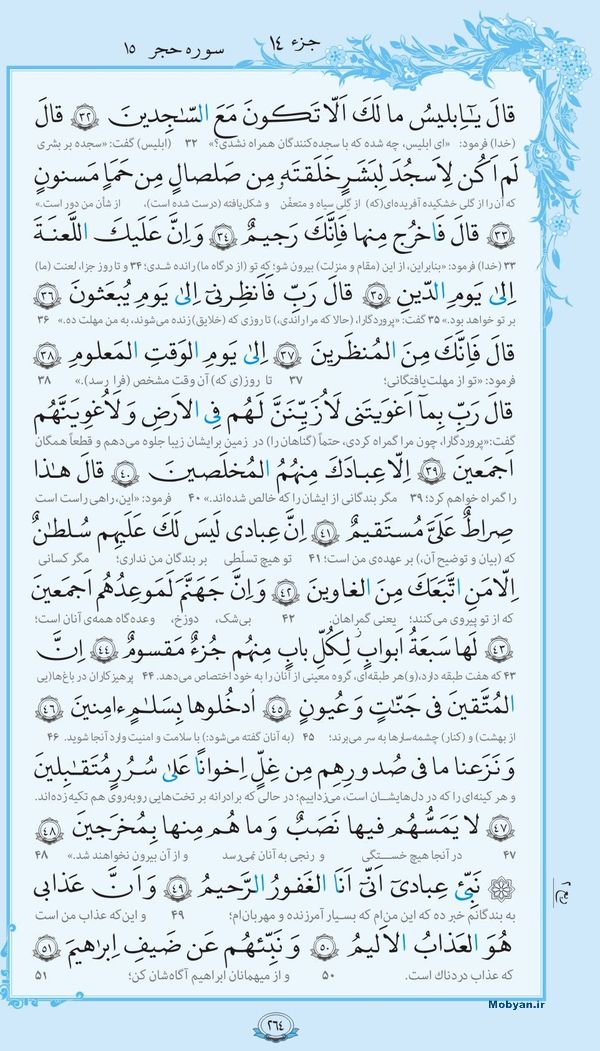 جزء ١٤
سوره حجر ١٥
قالَ يـٰٓاِبليسُ ما لَكَ اَلّا تَكونَ مَعَ السّٰـجِدينَ ﴿٣٢﴾ قالَ
(خدا) فرمود: «ای ابلیس، چه شده که با سجده‌کنندگان همراه نشدی؟» ۳۲ (ابلیس) گفت: «سجده بر بشری
لَم اَكُن لِاَسجُدَ لِبَشَرٍ خَلَقتَهٗ مِن صَلصالٍ مِن حَمَاٍ مَسنونٍ
که آن را از گلی خشکیده آفریده‌ای (که) از گِلی سیاه و متعفّن و شکل‌یافته (درست شده است)، از شأن من دور است.»
﴿٣٣﴾ قالَ فَاخرُج مِنها فَاِنَّكَ رَجيمٌ ﴿٣٤﴾ وَ اِنَّ عَلَيكَ اللَّعنَةَ
۳۳ (خدا) فرمود: «بنابراین، از این (مقام و منزلت) بیرون شو؛ که تو (از درگاه ما) رانده شدی؛ ۳۴ و تا روز جزا، لعنت (ما)
اِلىٰ يَومِ الدّينِ ﴿٣٥﴾ قالَ رَبِّ فَاَنظِرنى اِلىٰ يَومِ يُبعَثونَ ﴿٣٦﴾
بر تو خواهد بود.» ۳۵ گفت: «پروردگارا، (حالا که مرا راندی،) تا روزی که (خلایق) زنده می‌شوند، به من مهلت ده.» ۳۶
قالَ فَاِنَّكَ مِنَ المُنظَرينَ ﴿٣٧﴾ اِلىٰ يَومِ الوَقتِ المَعلومِ ﴿٣٨﴾
فرمود: «تو از مهلت‌یافتگانی؛ ۳۷ تا روز(ی که) آن وقت مشخص (فرا رسد).» ۳۸
قالَ رَبِّ بِمآ اَغوَيتَنى لَاُزَيِّنَنَّ لَهُم فِى الاَرضِ وَ لَاُغوِيَنَّهُم
گفت: «پروردگارا، چون مرا گمراه کردی، حتماً (گناهان را) در زمین برایشان زیبا جلوه می‌دهم و قطعاً همگان
اَجمَعينَ ﴿٣٩﴾ اِلّا عِبادَكَ مِنهُمُ المُخلَصينَ ﴿٤٠﴾ قالَ هـٰذا
را گمراه خواهم کرد؛ ۳۹ مگر بندگانی از ایشان را که خالص شده‌اند.» ۴۰ فرمود: «این، راهی راست است
صِراطٌ عَلَىَّ مُستَقيمٌ ﴿٤١﴾ اِنَّ عِبادى لَيسَ لَكَ عَلَيهِم سُلطـٰنٌ
که (بیان و توضیح آن،) بر عهده‌ی من است؛ ۴۱ تو هیچ تسلّطی بر بندگان من نداری؛ مگر کسانی
اِلّا مَنِ اتَّبَعَكَ مِنَ الغاوينَ ﴿٤٢﴾ وَ اِنَّ جَهَنَّمَ لَمَوعِدُهُم اَجمَعينَ
که از تو پیروی می‌کنند؛ یعنی گمراهان. ۴۲ بی‌شک، دوزخ، وعده‌گاه همه‌ی آنان است؛
﴿٤٣﴾ لَها سَبعَةُ اَبوابٍ لِكُلِّ بابٍ مِنهُم جُزءٌ مَقسومٌ ﴿٤٤﴾ اِنَّ
۴۳ که هفت طبقه دارد، (و) هر طبقه‌ای، گروه معینی از آنان را به خود اختصاص می‌دهد. ۴۴ پرهیزکاران در باغ‌ها(یی
المُتَّقينَ فى جَنّـٰتٍ وَ عُيونٍ ﴿٤٥﴾ اُدخُلوها بِسَلـٰمٍ ءامِنينَ ﴿٤٦﴾
از بهشت) و (کنار) چشمه‌سارها به سر می‌برند؛ ۴۵ (به آنان گفته می‌شود:) با سلامت و امنیت وارد آنجا شوید. ۴۶
وَ نَزَعنا ما فى صُدورِهِم مِن غِلٍّ اِخوانًا عَلىٰ سُرُرٍ مُتَقـٰبِلينَ
و هر کینه‌ای را که در دل‌هایشان است، می‌زداییم؛ در حالی که برادرانه بر تخت‌هایی روبه‌روی هم تکیه زده‌اند.
﴿٤٧﴾ لا يَمَسُّهُم فيها نَصَبٌ وَ ما هُم مِنها بِمُخرَجينَ ﴿٤٨﴾
۴۷ در آنجا هیچ خستگی و رنجی به آنان نمی‌رسد و از آن بیرون نخواهند شد.» ۴۸
نَبِّئ عِبادىٓ اَنّىٓ اَنَا الغَفورُ الرَّحيمُ ﴿٤٩﴾ وَ اَنَّ عَذابى
به بندگانم خبر ده که این من‌ام که بسیار آمرزنده و مهربان‌ام؛ ۴۹ و این‌که عذاب من است
هُوَ العَذابُ الاَليمُ ﴿٥٠﴾ وَ نَبِّئهُم عَن ضَيفِ اِبرٰهيمَ ﴿٥١﴾
که عذاب دردناک است. ۵۰ و از میهمانان ابراهیم آگاه‌شان کن؛ ۵۱
Mobyan.ir
٢٦٤